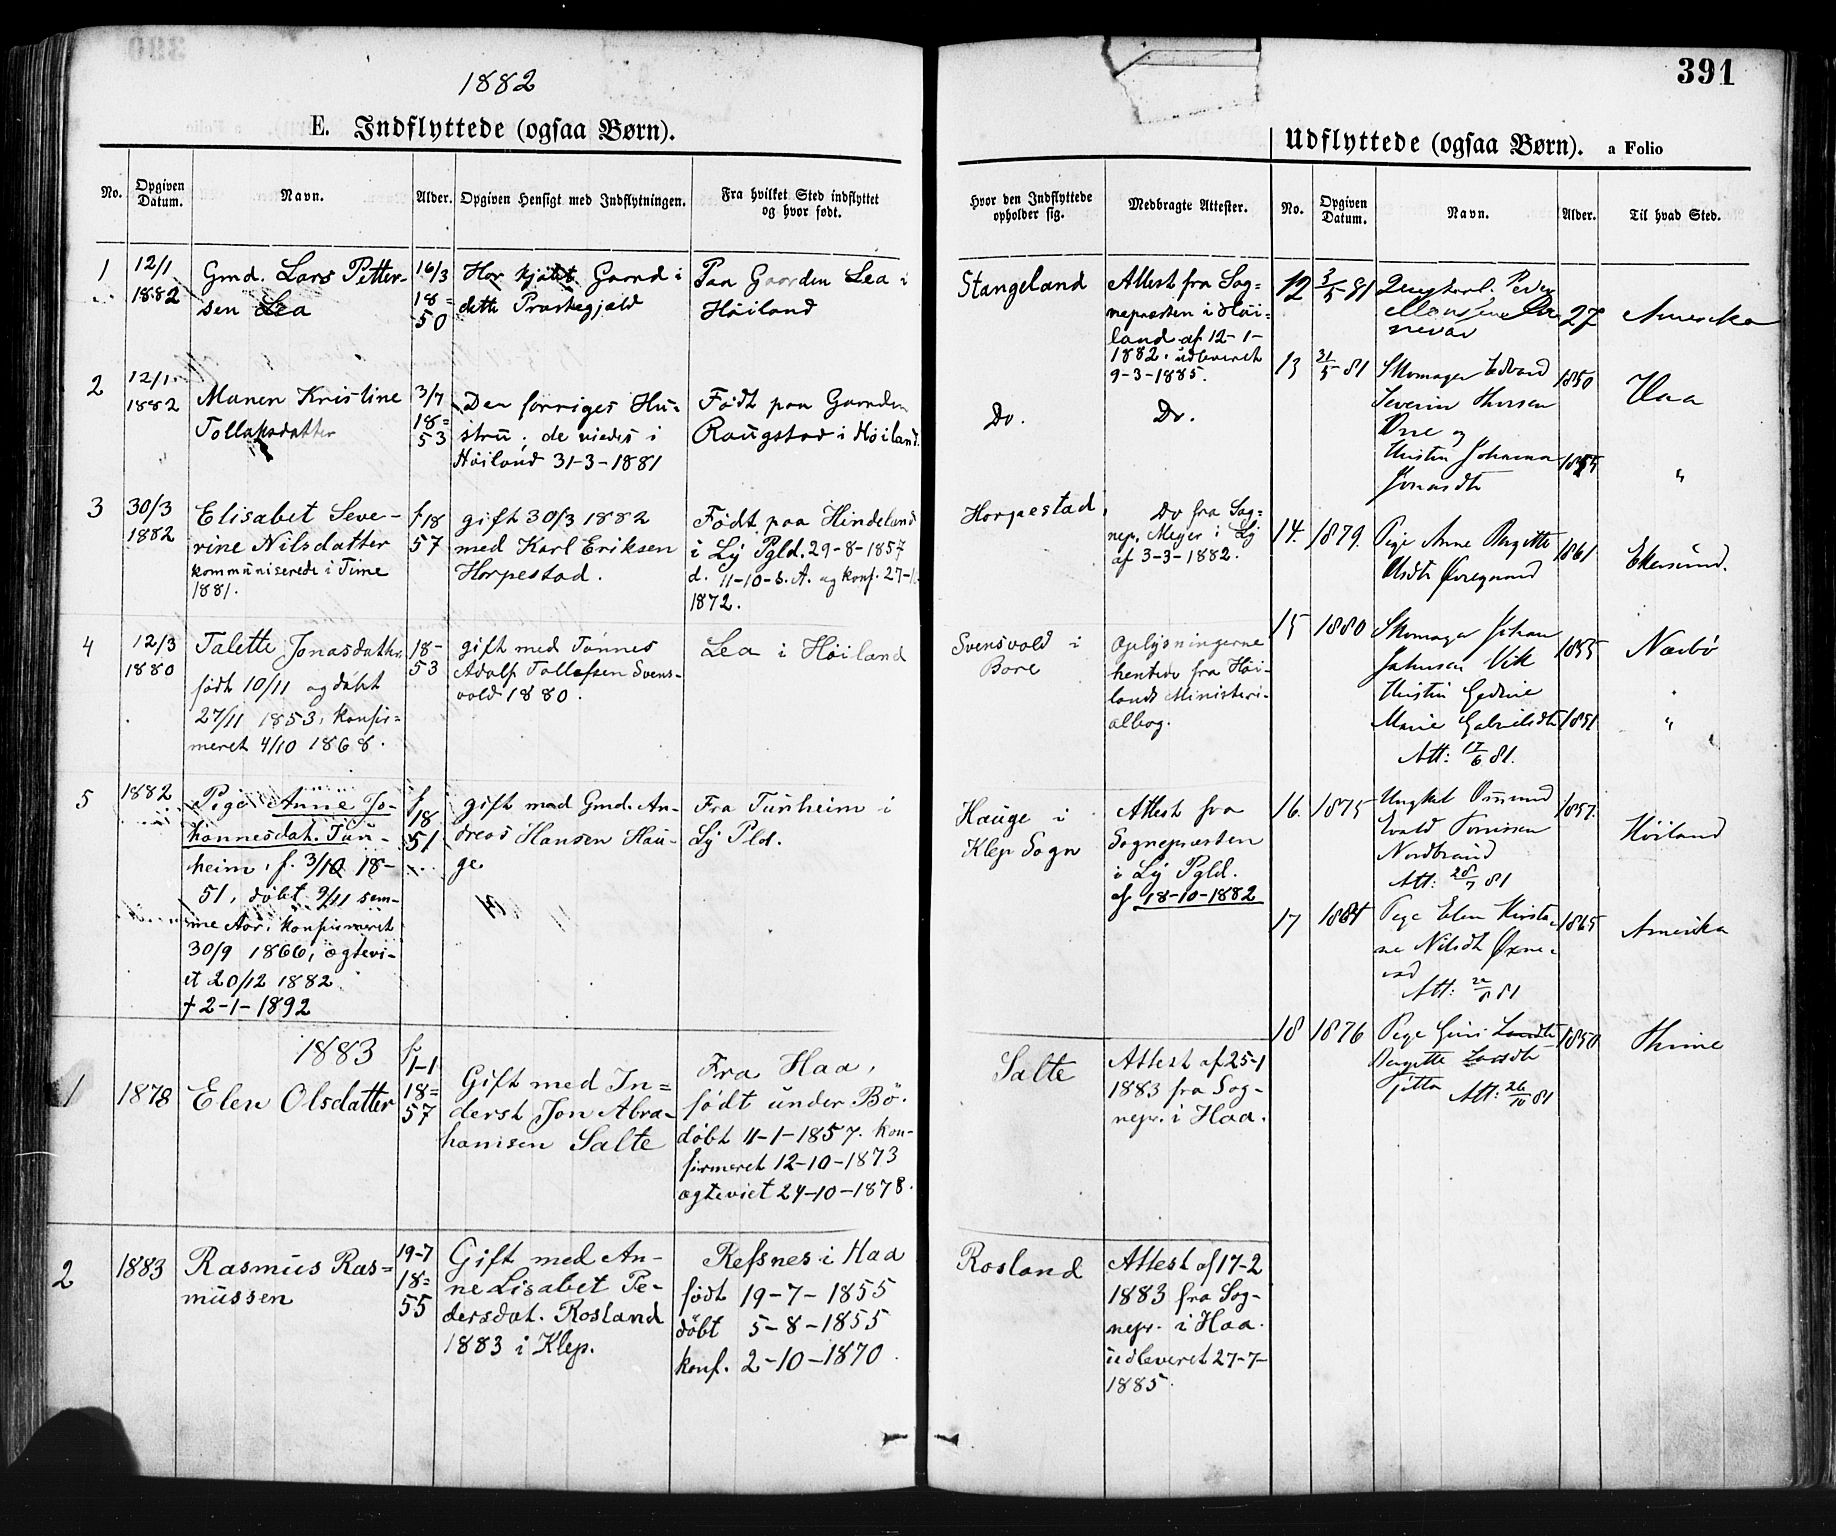 391
1882
E. Indflyttede (ogsaa Børn).
No.
Opgiven
Datum.
Navn.
Alder.
Opgiven Hensigt med Indflytningen.
Fra hvilket Sted indflyttet
og hvor født.
Hvor den Indflyttede
opholder sig.
Medbragte Attester.
1
12/1
1882
Gmd. Lars Petter-
sen Lea
16/3
18=
50
Har kjøbt Gaard i
dette Præstegjæld
Paa Gaarden Lea i
Höiland
Stangeland
Attest fra Sog-
nepræsten i Höi-
land af 12-1-
1882. udleveret
9-3-1885.
2
12/1
1882
Maren Kristine
Tollaksdatter
3/7
18=
53
Den forriges Hu-
stru; de viedes i
Höiland 31-3-1881
Født paa Gaarden
Raugstad i Höiland.
Do.
Do.
3
30/3
1882
Elisabet Seve-
rine Nilsdatter
kommuniserede i Time
1881.
f. 18
57
gift 30/3 1882
med Karl Eriksen
Horpestad.
Født paa Hindeland
i Ly Pgld. 29-8-1857
d. 11-10-s. A. og konf. 27-
1872.
Horpestad,
Do fra Sog=
nep. Meyer i Ly
af 3-3-1882.
4
12/3
1880
Talette Jonasdatter
født 10/11 og døbt
27/11 1853, konfir=
meret 4/10 1868.
18-
53
gift med Tönnes
Adolf Tollefsen Svens-
vold 1880.
Lea i Höiland
Svensvold i
Bore
Oplysningerne
hentede fra Höi-
lands Ministeri-
albog.
5
1882
Pige Anne Jo-
hannesdat. Tun-
heim, f. 3/10 18-
51, döbt 9/11 sam-
me Aar, konfirmeret
30/9 1866, ægtevi-
et 20/12 1882.
† 2-1-1892
f.
18
51
gift med Gmd. An-
dreas Hansen Hau-
ge
Fra Tunheim i
Ly Pld.
Hauge i
Klep Sogn
Attest fra
Sognepræsten
i Ly Pgld.
af 18-10-1882
1883
1
1878
Elen Olsdatter
f.
1-1
18=
57
Gift med In=
derst Jon Abra-
hamsen Salte
Fra Haa,
født under Bö.
döbt 11-1-1857. kon-
firmeret 12-10-1873
ægteviet 24-10-1878.
Salte
Attest af 25-1
1883 fra Sog-
nepr. i Haa.
2
1883
Rasmus Ras=
mussen
19-7
18=
55
Gift med An-
ne Lisabet Pe-
dersdat. Rosland
1883 i Klep.
Refsnes i Haa
født 19-7-1855
döbt 5-8-1855
konf. 2-10-1870.
Rosland
Attest af 17-2
1883 fra Sog-
nepr. i Haa.
udleveret 27-7-
1885.
Udflyttede (ogsaa Børn). a Folio
No.
Opgiven
Datum.
Navn.
Alder.
Til hvad Sted.
12
3/5 81
Peder
27
Amerika
13
31/5 81
Skomager Edvard
Severin Thorsen
og
Johanna
Jonasdtr
1850
1855
Haa
"
14.
1879.
Pige Anne Birgitte
Olsdtr Øvregaard
1861
Ekersund.
15
1880
Skomager Johan
Johnsen Vik
Marie Gabrielsdtr
Att: 17/6 81.
1855
1851
Nærbø
"
16.
1875
Ungkal
Evald Tønnesen
Nordbraud
Att: 28/7 81
1857.
Höiland
17
1881
Pige Elen Kirsti-
ne Nilsdt Øxne-
vad
Att: 22/8 81
1865
Amerika
18
1876
Pige Guri
Bergitte Larsdtr
Att: 26/10 81
1850
Thime